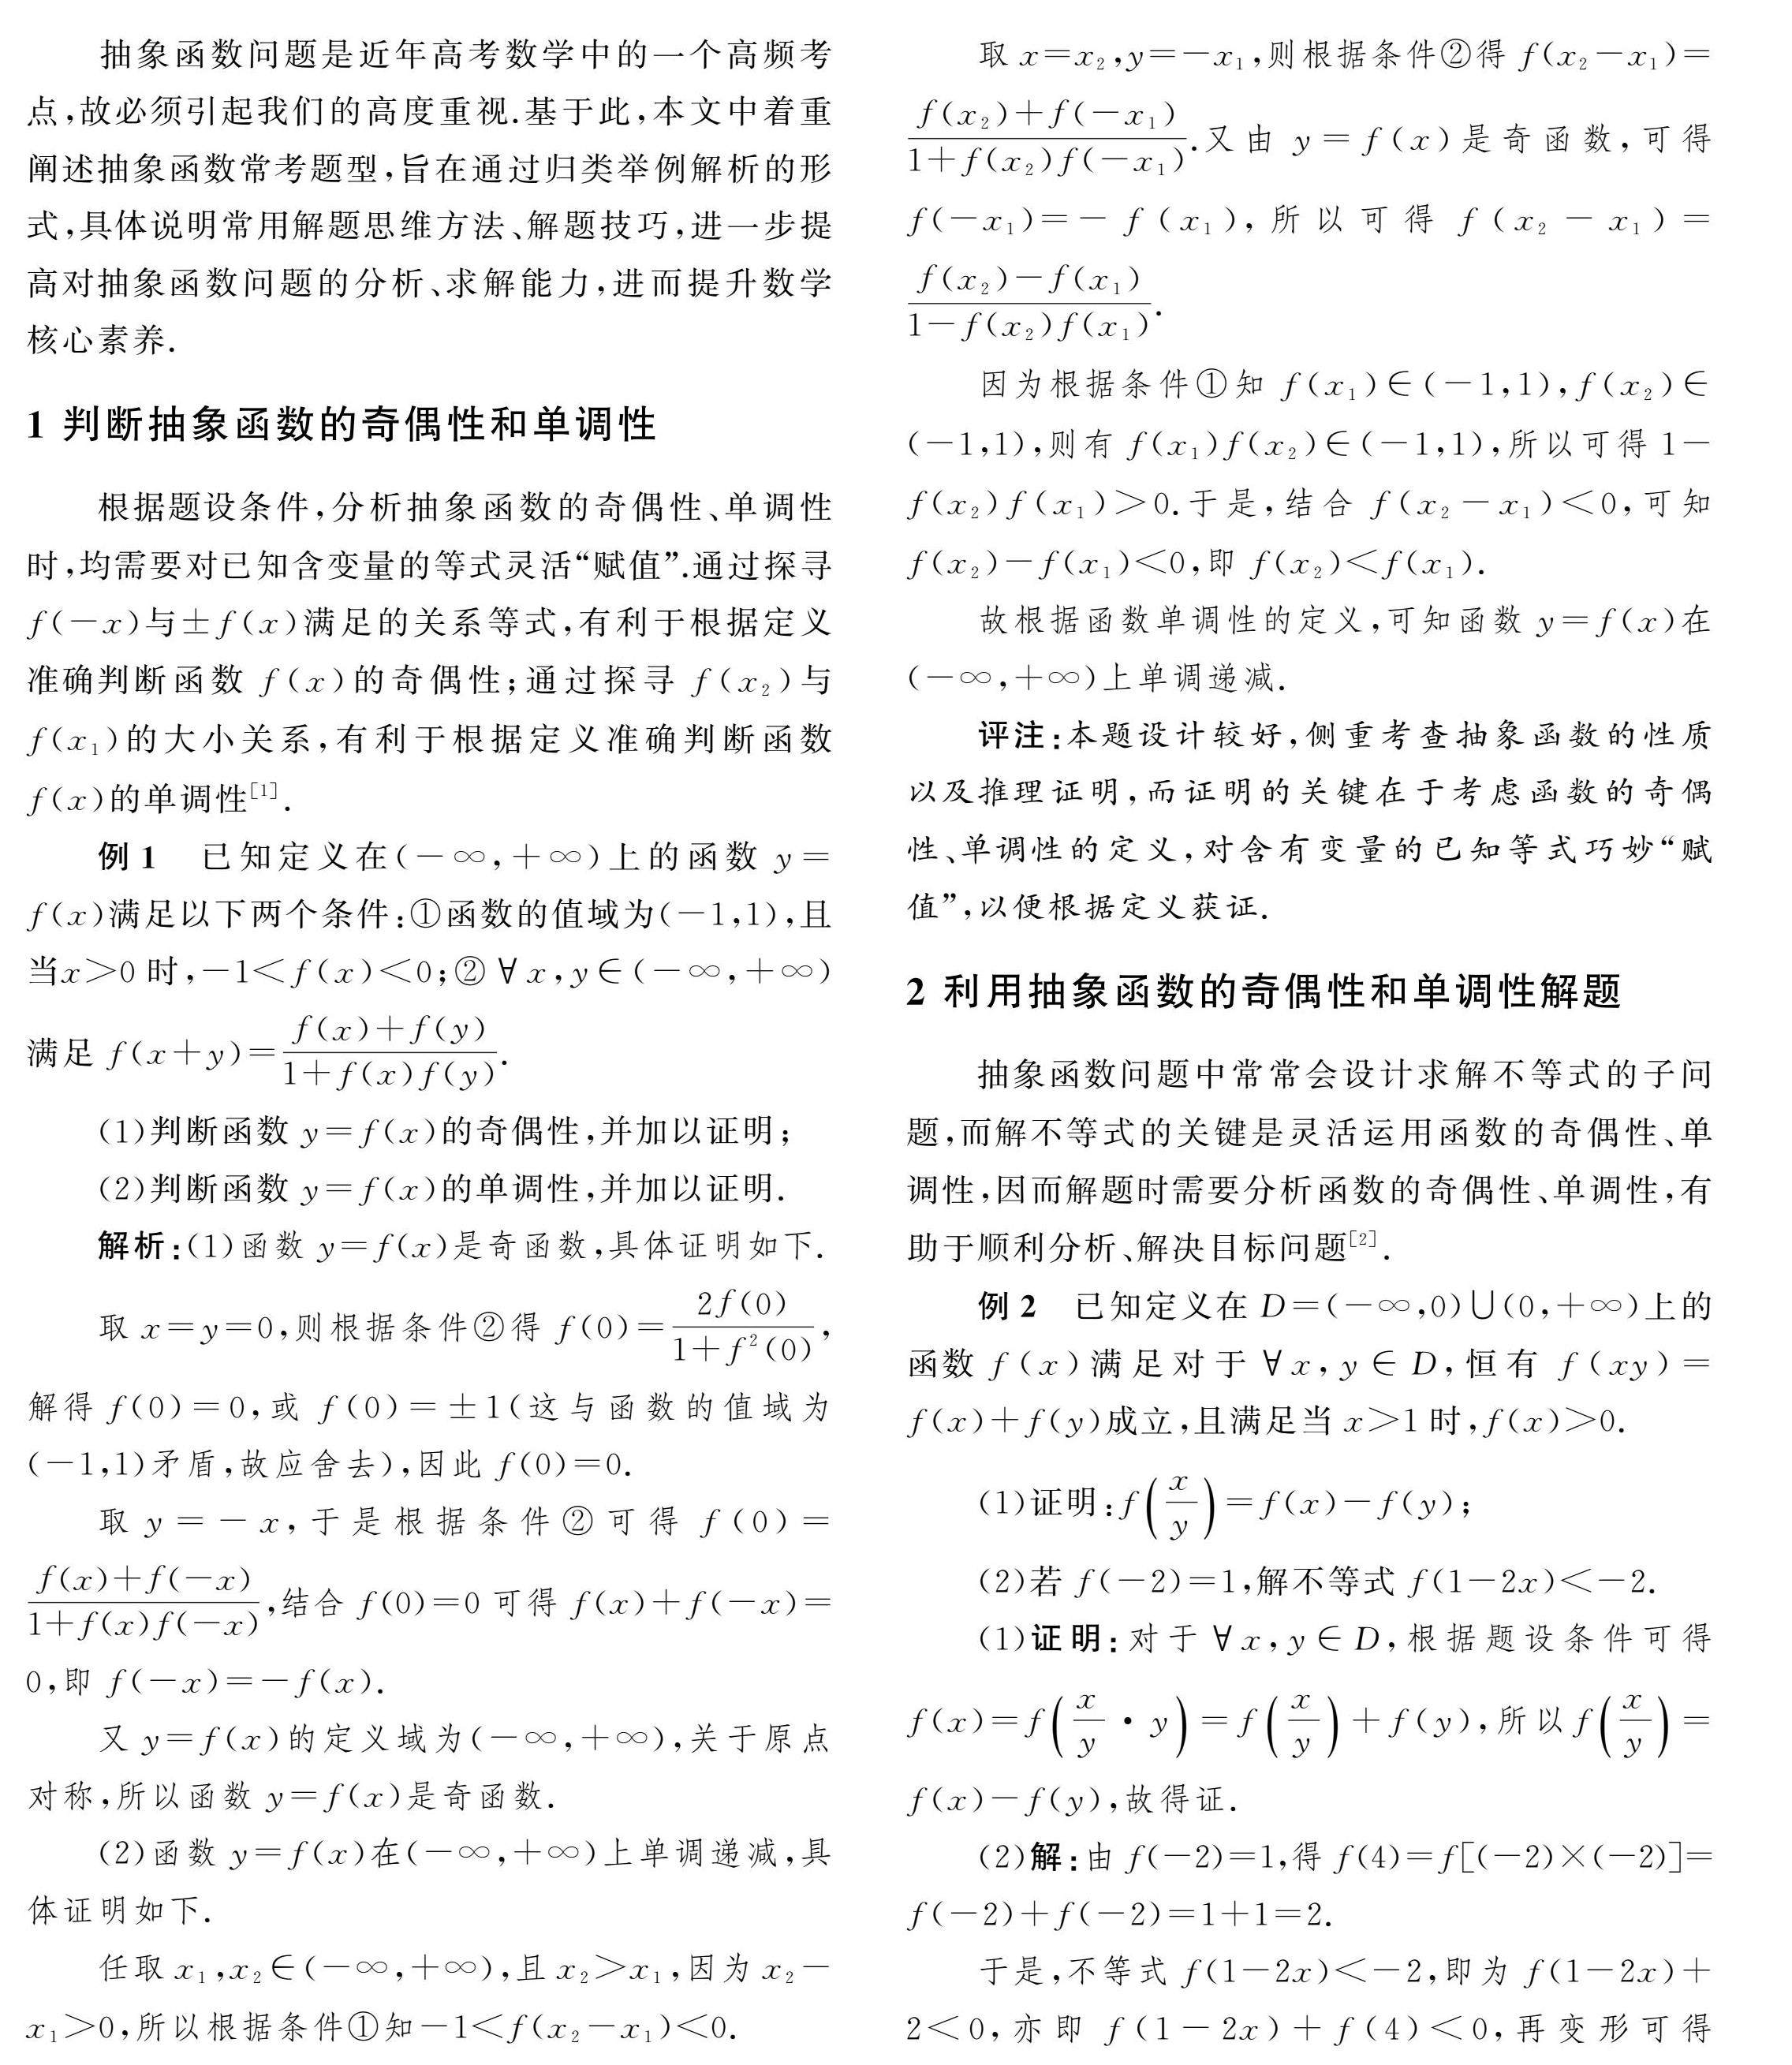 抽象函数问题是近年高考数学中的一个高频考
点,故必须引起我们的高度重视.基于此,本文中着重
阐述抽象函数常考题型,旨在通过归类举例解析的形
式,具体说明常用解题思维方法、解题技巧,进一步提
高对抽象函数问题的分析、求解能力,进而提升数学
核心素养.
1 判断抽象函数的奇偶性和单调性
根据题设条件,分析抽象函数的奇偶性、单调性
时,均需要对已知含变量的等式灵活“赋值”.通过探寻
f(−x)与±f(x)满足的关系等式,有利于根据定义
准确判断函数 f(x)的奇偶性;通过探寻 f(x₂)与
f(x₁)的大小关系,有利于根据定义准确判断函数
f(x)的单调性[1].
例1 已知定义在(−∞,+∞)上的函数 y=
f(x)满足以下两个条件:①函数的值域为(−1,1),且
当x>0 时,−1<f(x)<0;②∀x,y∈(−∞,+∞)
满足 f(x+y)=\frac{f(x)+f(y)}{1+f(x)f(y)}.
(1)判断函数 y=f(x)的奇偶性,并加以证明;
(2)判断函数 y=f(x)的单调性,并加以证明.
解析:(1)函数 y=f(x)是奇函数,具体证明如下.
取 x=y=0,则根据条件②得 f(0)=\frac{2f(0)}{1+f²(0)},
解得 f(0)=0,或 f(0)=±1(这与函数的值域为
(−1,1)矛盾,故应舍去),因此 f(0)=0.
取 y=−x,于是根据条件②可得 f(0)=
\frac{f(x)+f(−x)}{1+f(x)f(−x)},结合 f(0)=0 可得 f(x)+f(−x)=
0,即 f(−x)=−f(x).
又 y=f(x)的定义域为(−∞,+∞),关于原点
对称,所以函数 y=f(x)是奇函数.
(2)函数 y=f(x)在(−∞,+∞)上单调递减,具
体证明如下.
任取 x₁,x₂∈(−∞,+∞),且 x₂>x₁,因为 x₂−
x₁>0,所以根据条件①知−1<f(x₂−x₁)<0.
取 x=x₂,y=−x₁,则根据条件②得 f(x₂−x₁)=
\frac{f(x₂)+f(−x₁)}{1+f(x₂)f(−x₁)}.又由 y=f(x)是奇函数,可得
f(−x₁)=−f(x₁),所以可得 f(x₂−x₁)=
\frac{f(x₂)−f(x₁)}{1−f(x₂)f(x₁)}.
因为根据条件①知 f(x₁)∈(−1,1),f(x₂)∈
(−1,1),则有 f(x₁)f(x₂)∈(−1,1),所以可得 1−
f(x₂)f(x₁)>0.于是,结合 f(x₂−x₁)<0,可知
f(x₂)−f(x₁)<0,即 f(x₂)<f(x₁).
故根据函数单调性的定义,可知函数 y=f(x)在
(−∞,+∞)上单调递减.
评注:本题设计较好,侧重考查抽象函数的性质
以及推理证明,而证明的关键在于考虑函数的奇偶
性、单调性的定义,对含有变量的已知等式巧妙“赋
值”,以便根据定义获证.
2 利用抽象函数的奇偶性和单调性解题
抽象函数问题中常常会设计求解不等式的子问
题,而解不等式的关键是灵活运用函数的奇偶性、单
调性,因而解题时需要分析函数的奇偶性、单调性,有
助于顺利分析、解决目标问题[2].
例2 已知定义在 D=(−∞,0)∪(0,+∞)上的
函数 f(x)满足对于∀x,y∈D,恒有 f(xy)=
f(x)+f(y)成立,且满足当 x>1 时,f(x)>0.
(1)证明:f(\frac{x}{y})=f(x)−f(y);
(2)若 f(−2)=1,解不等式 f(1−2x)<−2.
(1)证明:对于∀x,y∈D,根据题设条件可得
f(x)=f(\frac{x}{y}·y)=f(\frac{x}{y})+f(y),所以 f(\frac{x}{y})=
f(x)−f(y),故得证.
(2)解:由 f(−2)=1,得 f(4)=f[(−2)×(−2)]=
f(−2)+f(−2)=1+1=2.
于是,不等式 f(1−2x)<−2,即为 f(1−2x)+
2<0,亦即 f(1−2x)+f(4)<0,再变形可得